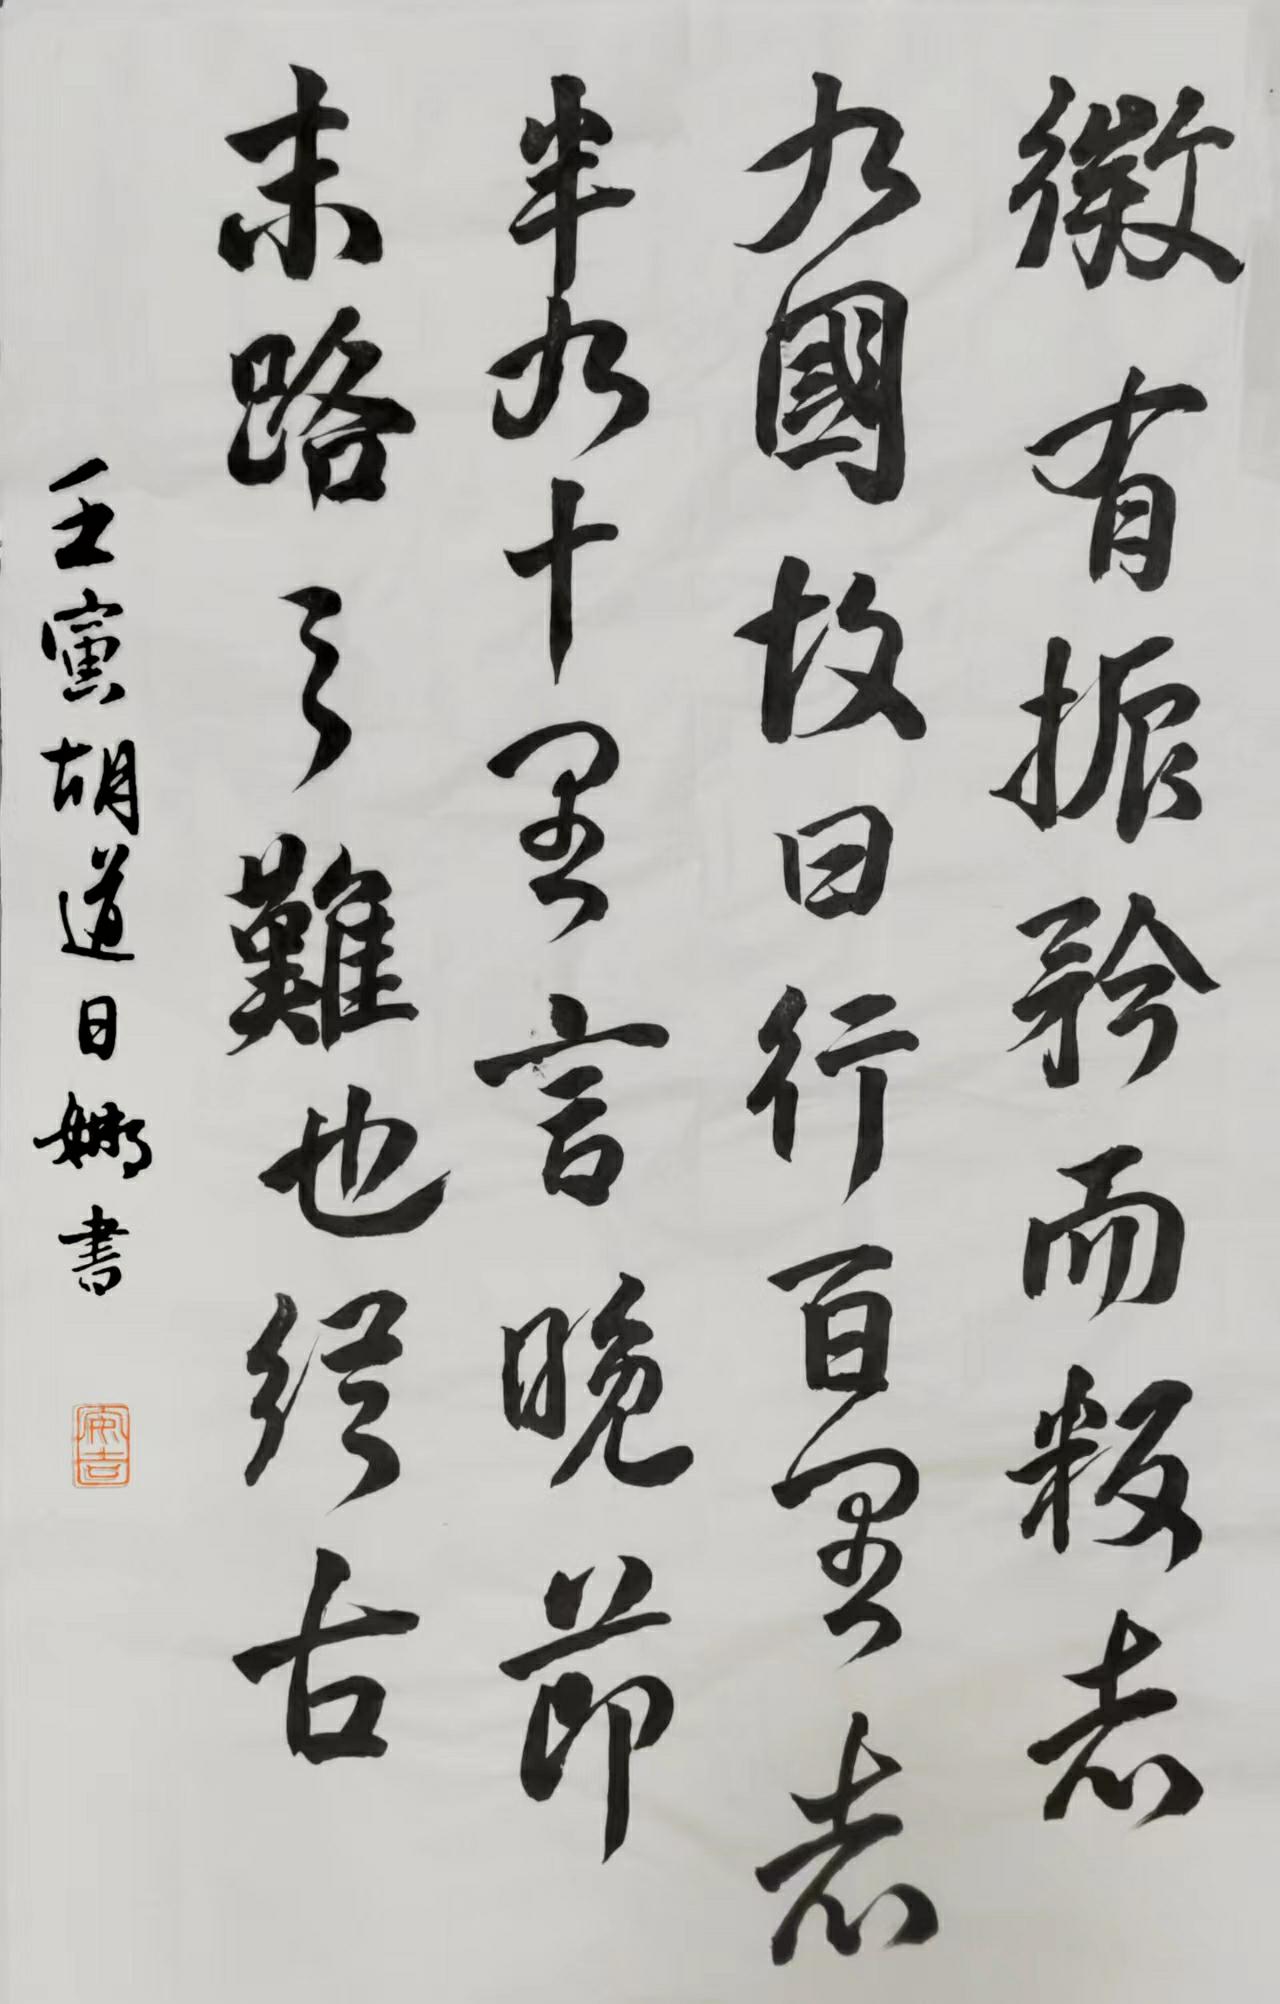 微有振矜而叛者
九國故曰行百里者
半九十里言晚節
末路之難也從古
壬寅胡道日娜書
安吉